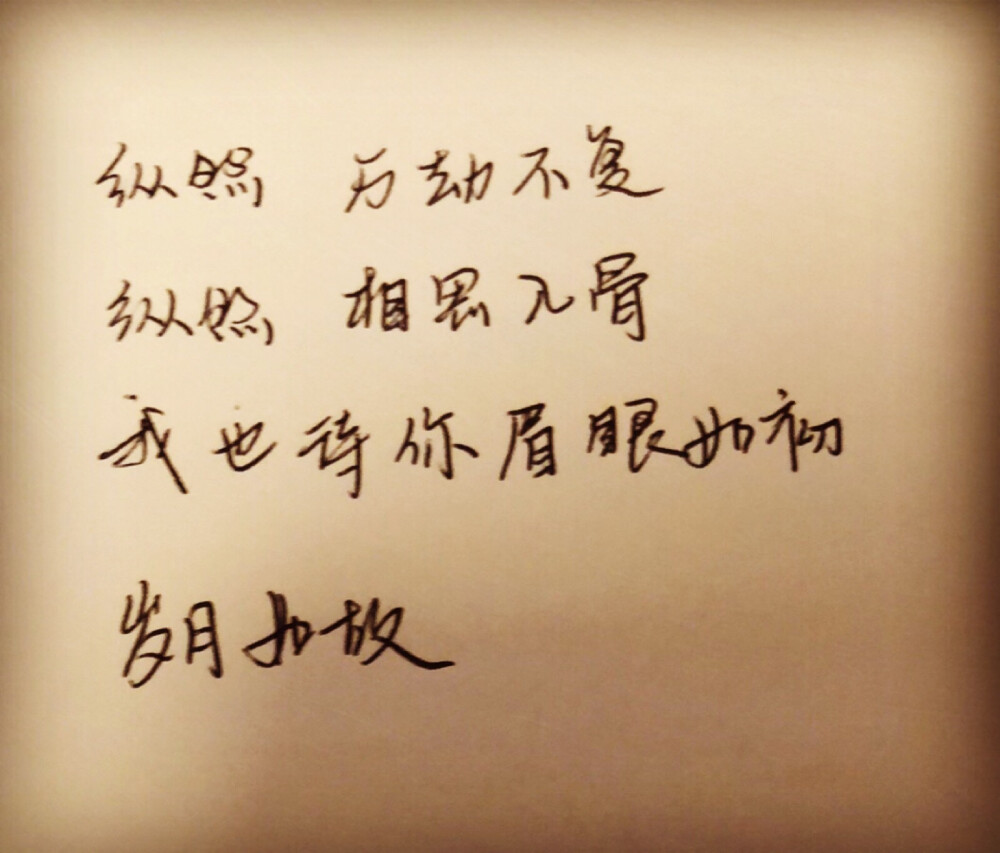 纵然 万劫不复
纵然 相思入骨
我也待你眉眼如初
岁月如故